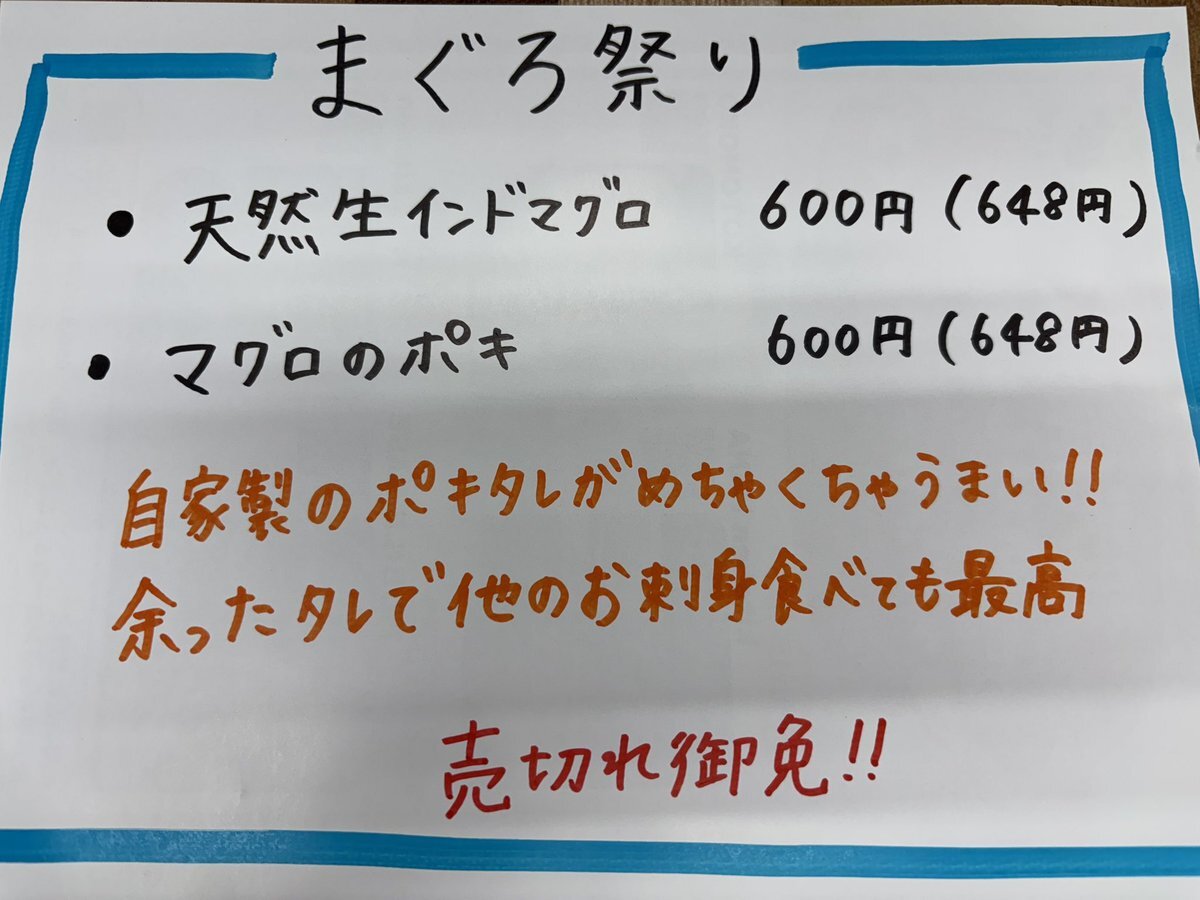 まぐろ祭り
● 天然生インドマグロ 600円(648円)
● マグロのポキ 600円(648円)
自家製のポキタレがめちゃくちゃうまい!!
余ったタレで他のお刺身食べても最高
売切れ御免!!